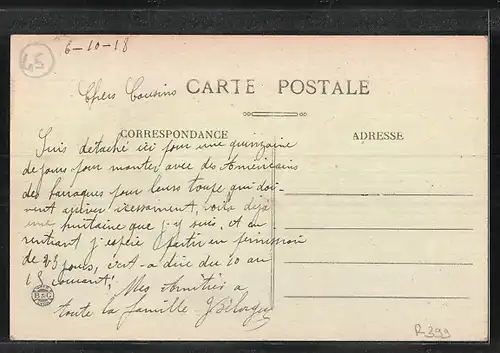 45
6-10-18
Chers Cousins
CARTE POSTALE
CORRESPONDANCE
ADRESSE
Suis detaché ici pour une quinzaine
de jours pour monter avec des Américains
des barraques pour leurs troupe qui doi-
vent arriver icessament, voila déjà
une huitaine que j'y suis. et en
rentrant j'espère partir en permission
de 23 jours, c'est-a dire du 10 au
15 courant, Mes Amitiés a
toute la famille
B&G
R399